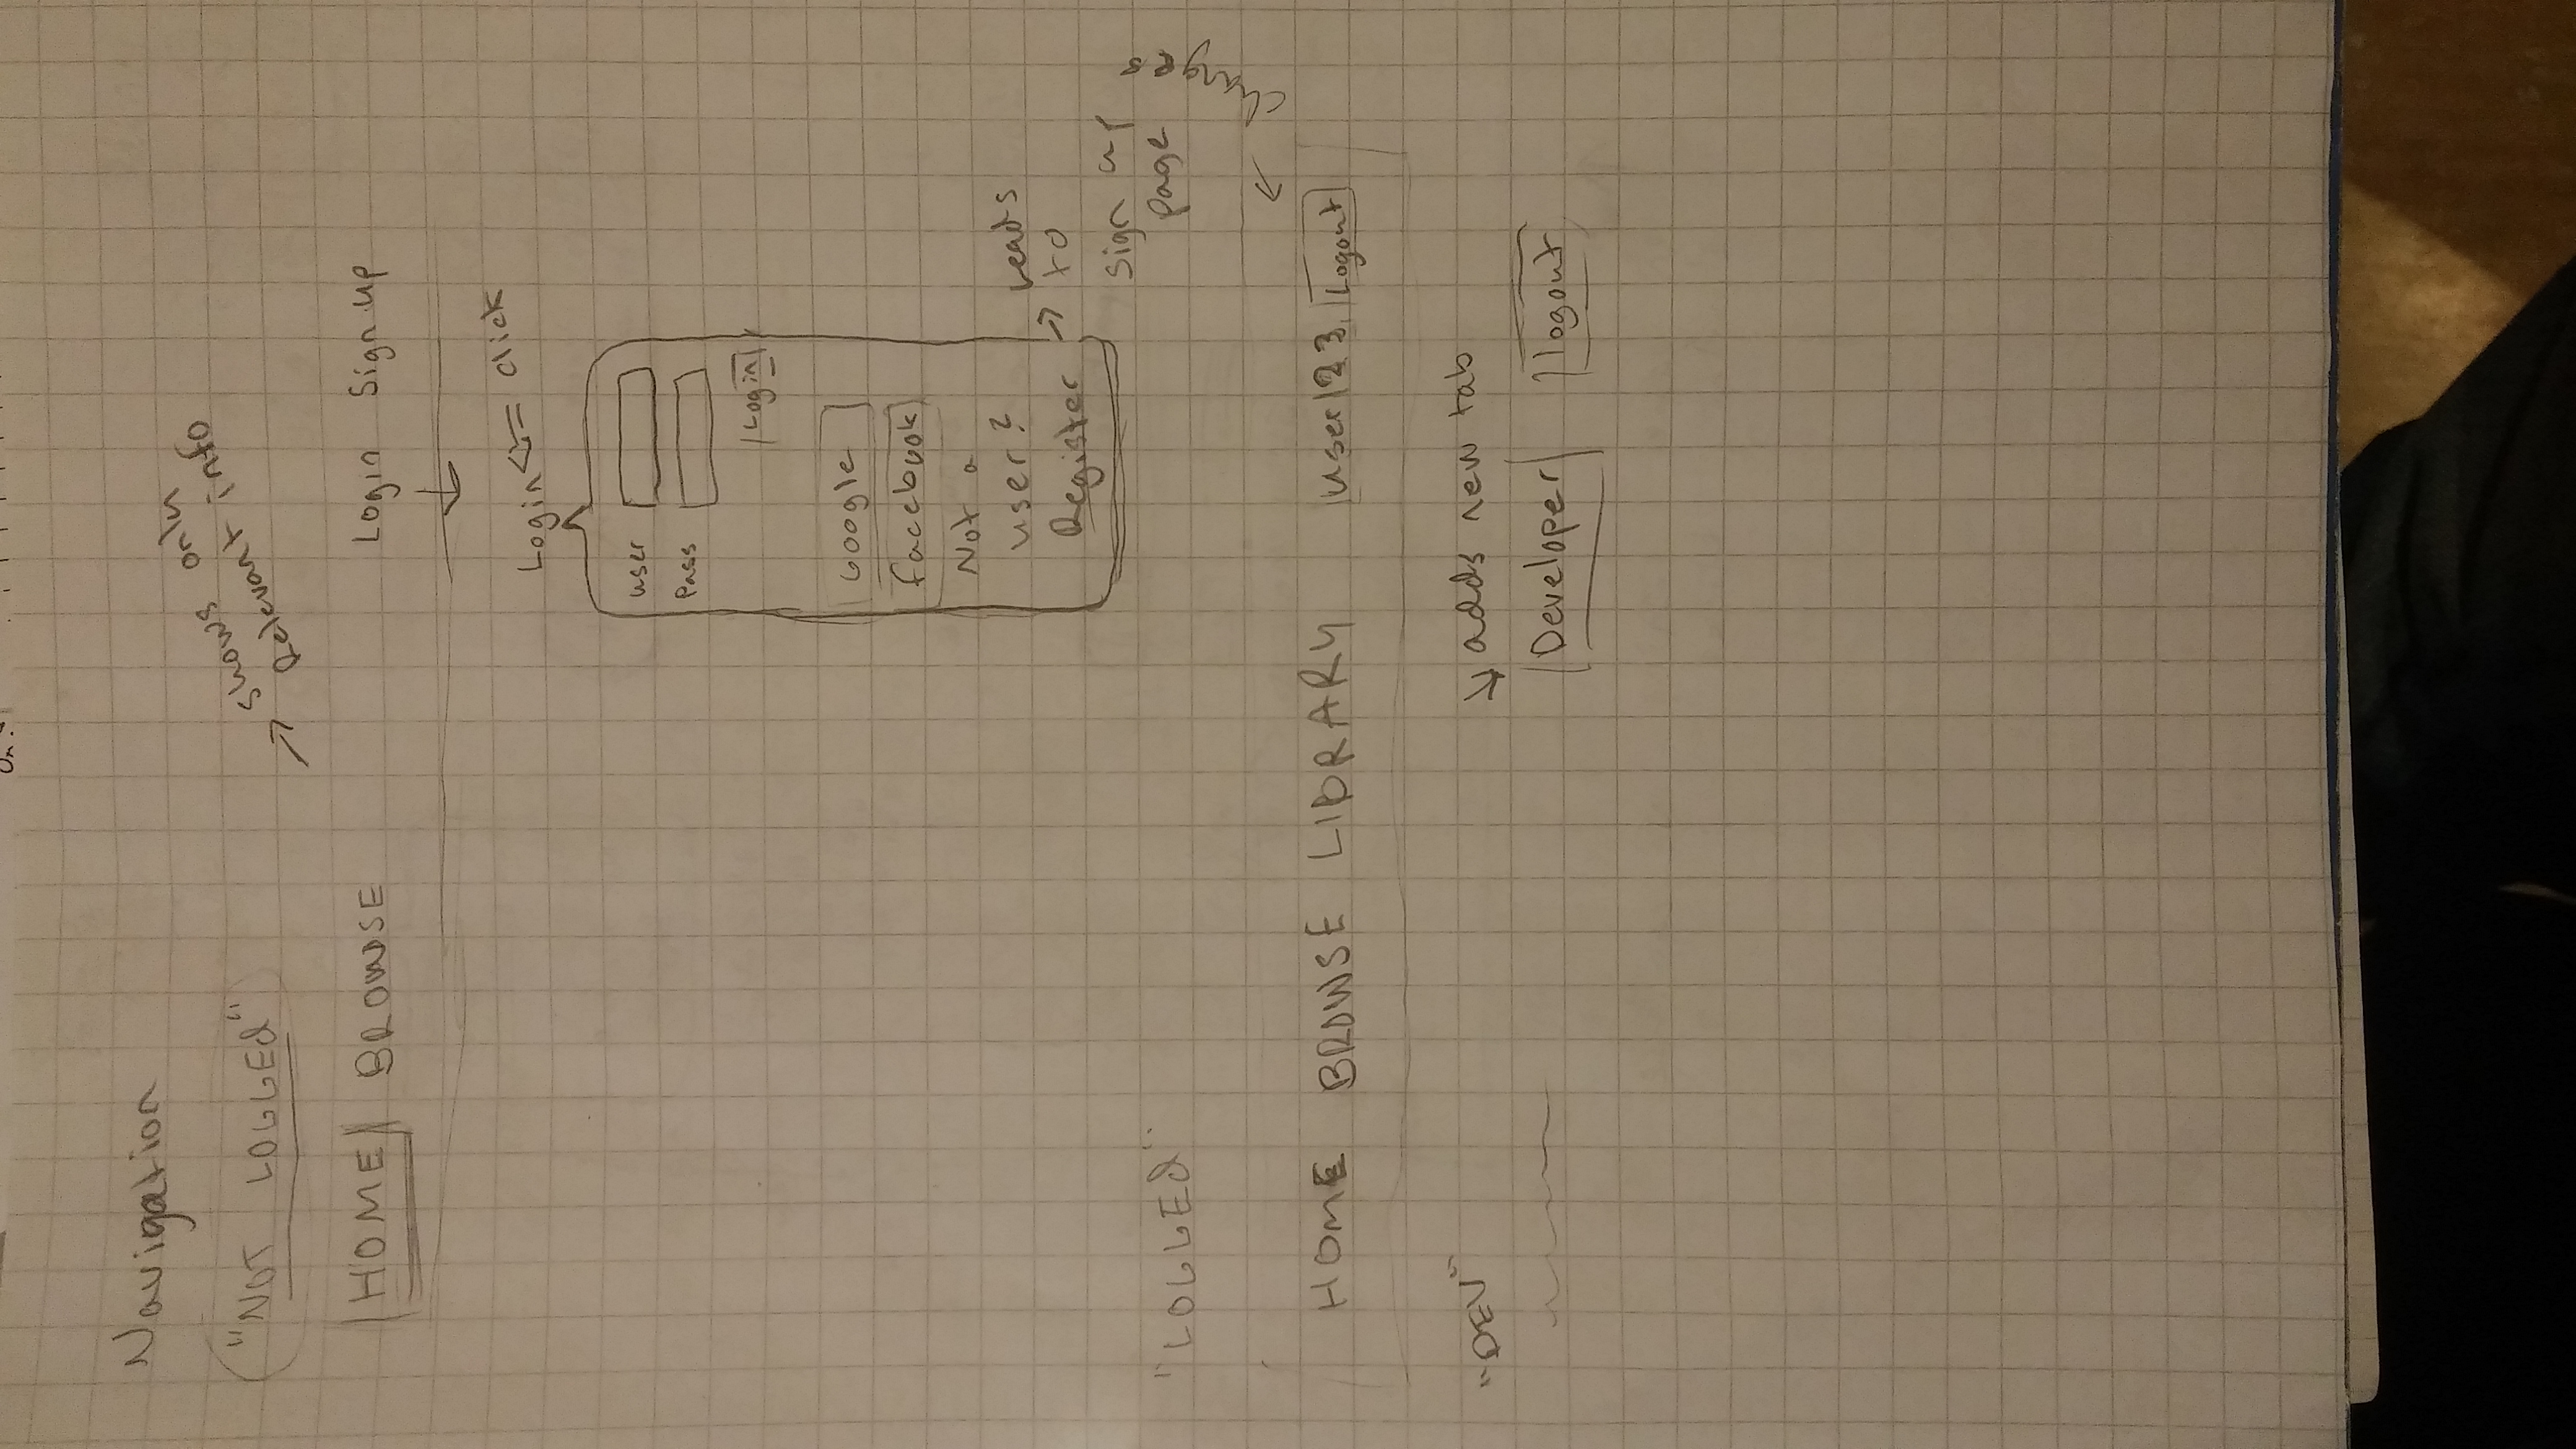 On.
Navigation
"NOT LOGGEd"
shows only
Relevant info
HOME BROWSE
Login Sign up
Login click
user
Pass
Login
Google
facebook
Not a
user?
Register
Leads
to
sign up
page
"LOGGEd"
changes
HOME BROWSE LIBRARY user123 Logout
"DEV"
adds new tab
Developer logout